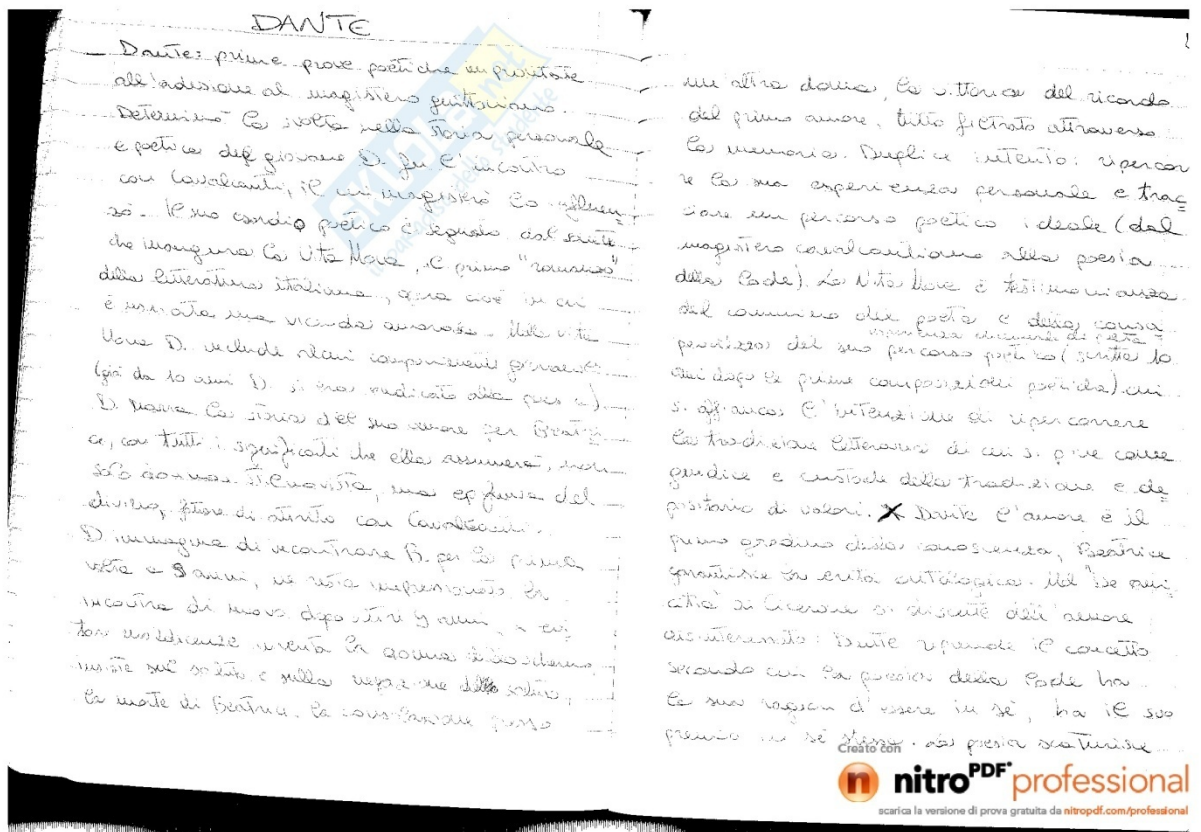 DANTE
Dante: prime prove poetiche improntate
all'adesione al magistero guittoniano.
Determinò la svolta nella storia personale
e poetica del giovane D. fu l'incontro
con Cavalcanti, il cui magistero lo influen
zò. Il suo esordio poetico è segnato dal
che inaugura la Vita Nova, il primo "romanzo"
della letteratura italiana, opera cioè in cui
è narrata una vicenda amorosa. Nella Vita
Nova D. include alcuni componimenti giovanili
(già da 10 anni D. si era dedicato alla poesia).
D. narra la storia del suo amore per Beatri
ce, con tutti i significati che ella assumerà, non
solo donna stilnovista, ma epifania del
divino, fonte di attrito con Cavalcanti.
D. immagina di incontrare B. per la prima
volta a 9 anni, ne resta impressionato la
incontra di nuovo dopo altri 9 anni, x evi
tare maldicenze inventa la donna dello schermo,
insiste sul saluto e sulla negazione del saluto,
la morte di Beatrice. la consolazione presso
un'altra donna, la vittoria del ricordo
del primo amore, tutto filtrato attraverso
la memoria. Duplice intento: ripercor
re la sua esperienza personale e trac
ciare un percorso poetico ideale (dal
magistero cavalcantiano alla poesia
della lode). La Vita Nova è testimonianza
del cammino del poeta e della
del suo percorso poetico (scritta 10
anni dopo le prime composizioni poetiche). cui
si affianca l'intenzione di ripercorrere
la tradizione letteraria di cui si pone come
giudice e custode della tradizione e de
positario di valori. X Dante l'amore è il
primo gradino della conoscenza, Beatrice
garantisce la verità ontologica. Nel "De ami
citia" di Cicerone si discute dell'amore
disinteressato: Dante riprende il concetto
secondo cui la poesia della lode ha
la sua ragion d'essere in sé, ha il suo
premio in sé stessa. La poesia scaturisce
Creato con
nitro PDF professional
scarica la versione di prova gratuita da nitropdf.com/professional